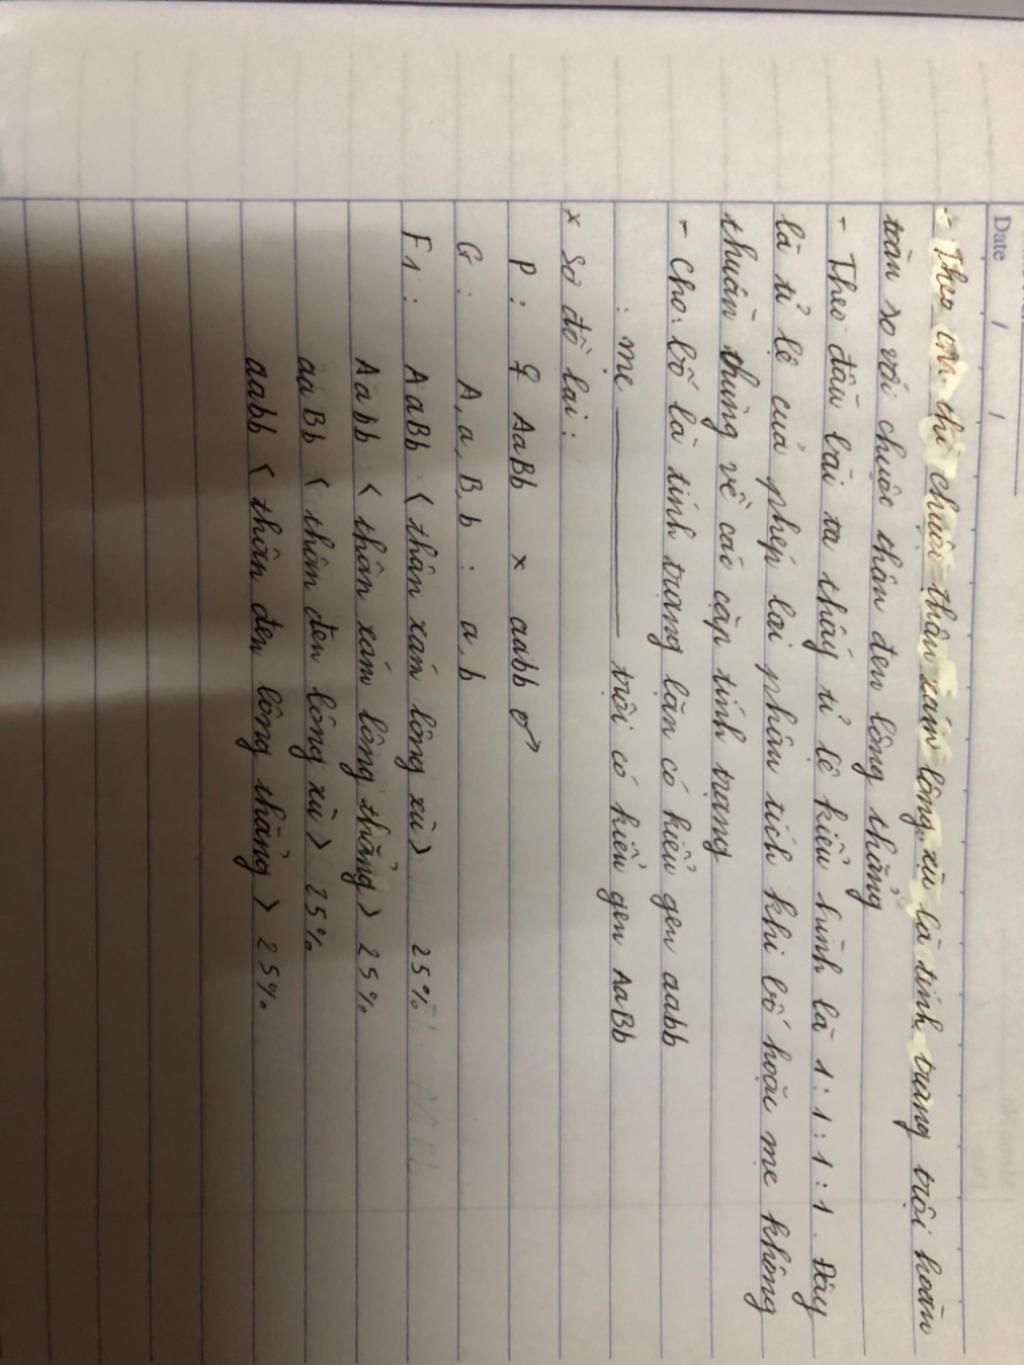 Date / /
- Theo ..., thì chuột thân xám lông xù là tính trạng trội hoàn
toàn so với chuột thân đen lông thẳng
- Theo đầu bài ta thấy tỉ lệ kiểu hình là 1 : 1 : 1 : 1. Đây
là tỉ lệ của phép lai phân tích khi bố hoặc mẹ không
thuần chủng về các cặp tính trạng
- Cho: bố là tính trạng lặn có kiểu gen aabb
: mẹ ——— trội có kiểu gen AaBb
x Sơ đồ lai:
P : ♀ AaBb x aabb ♂
G : A, a, B, b : a, b
F1 : AaBb < thân xám lông xù > 25%
Aabb < thân xám lông thẳng > 25%
aaBb < thân đen lông xù > 25%
aabb < thân đen lông thẳng > 25%